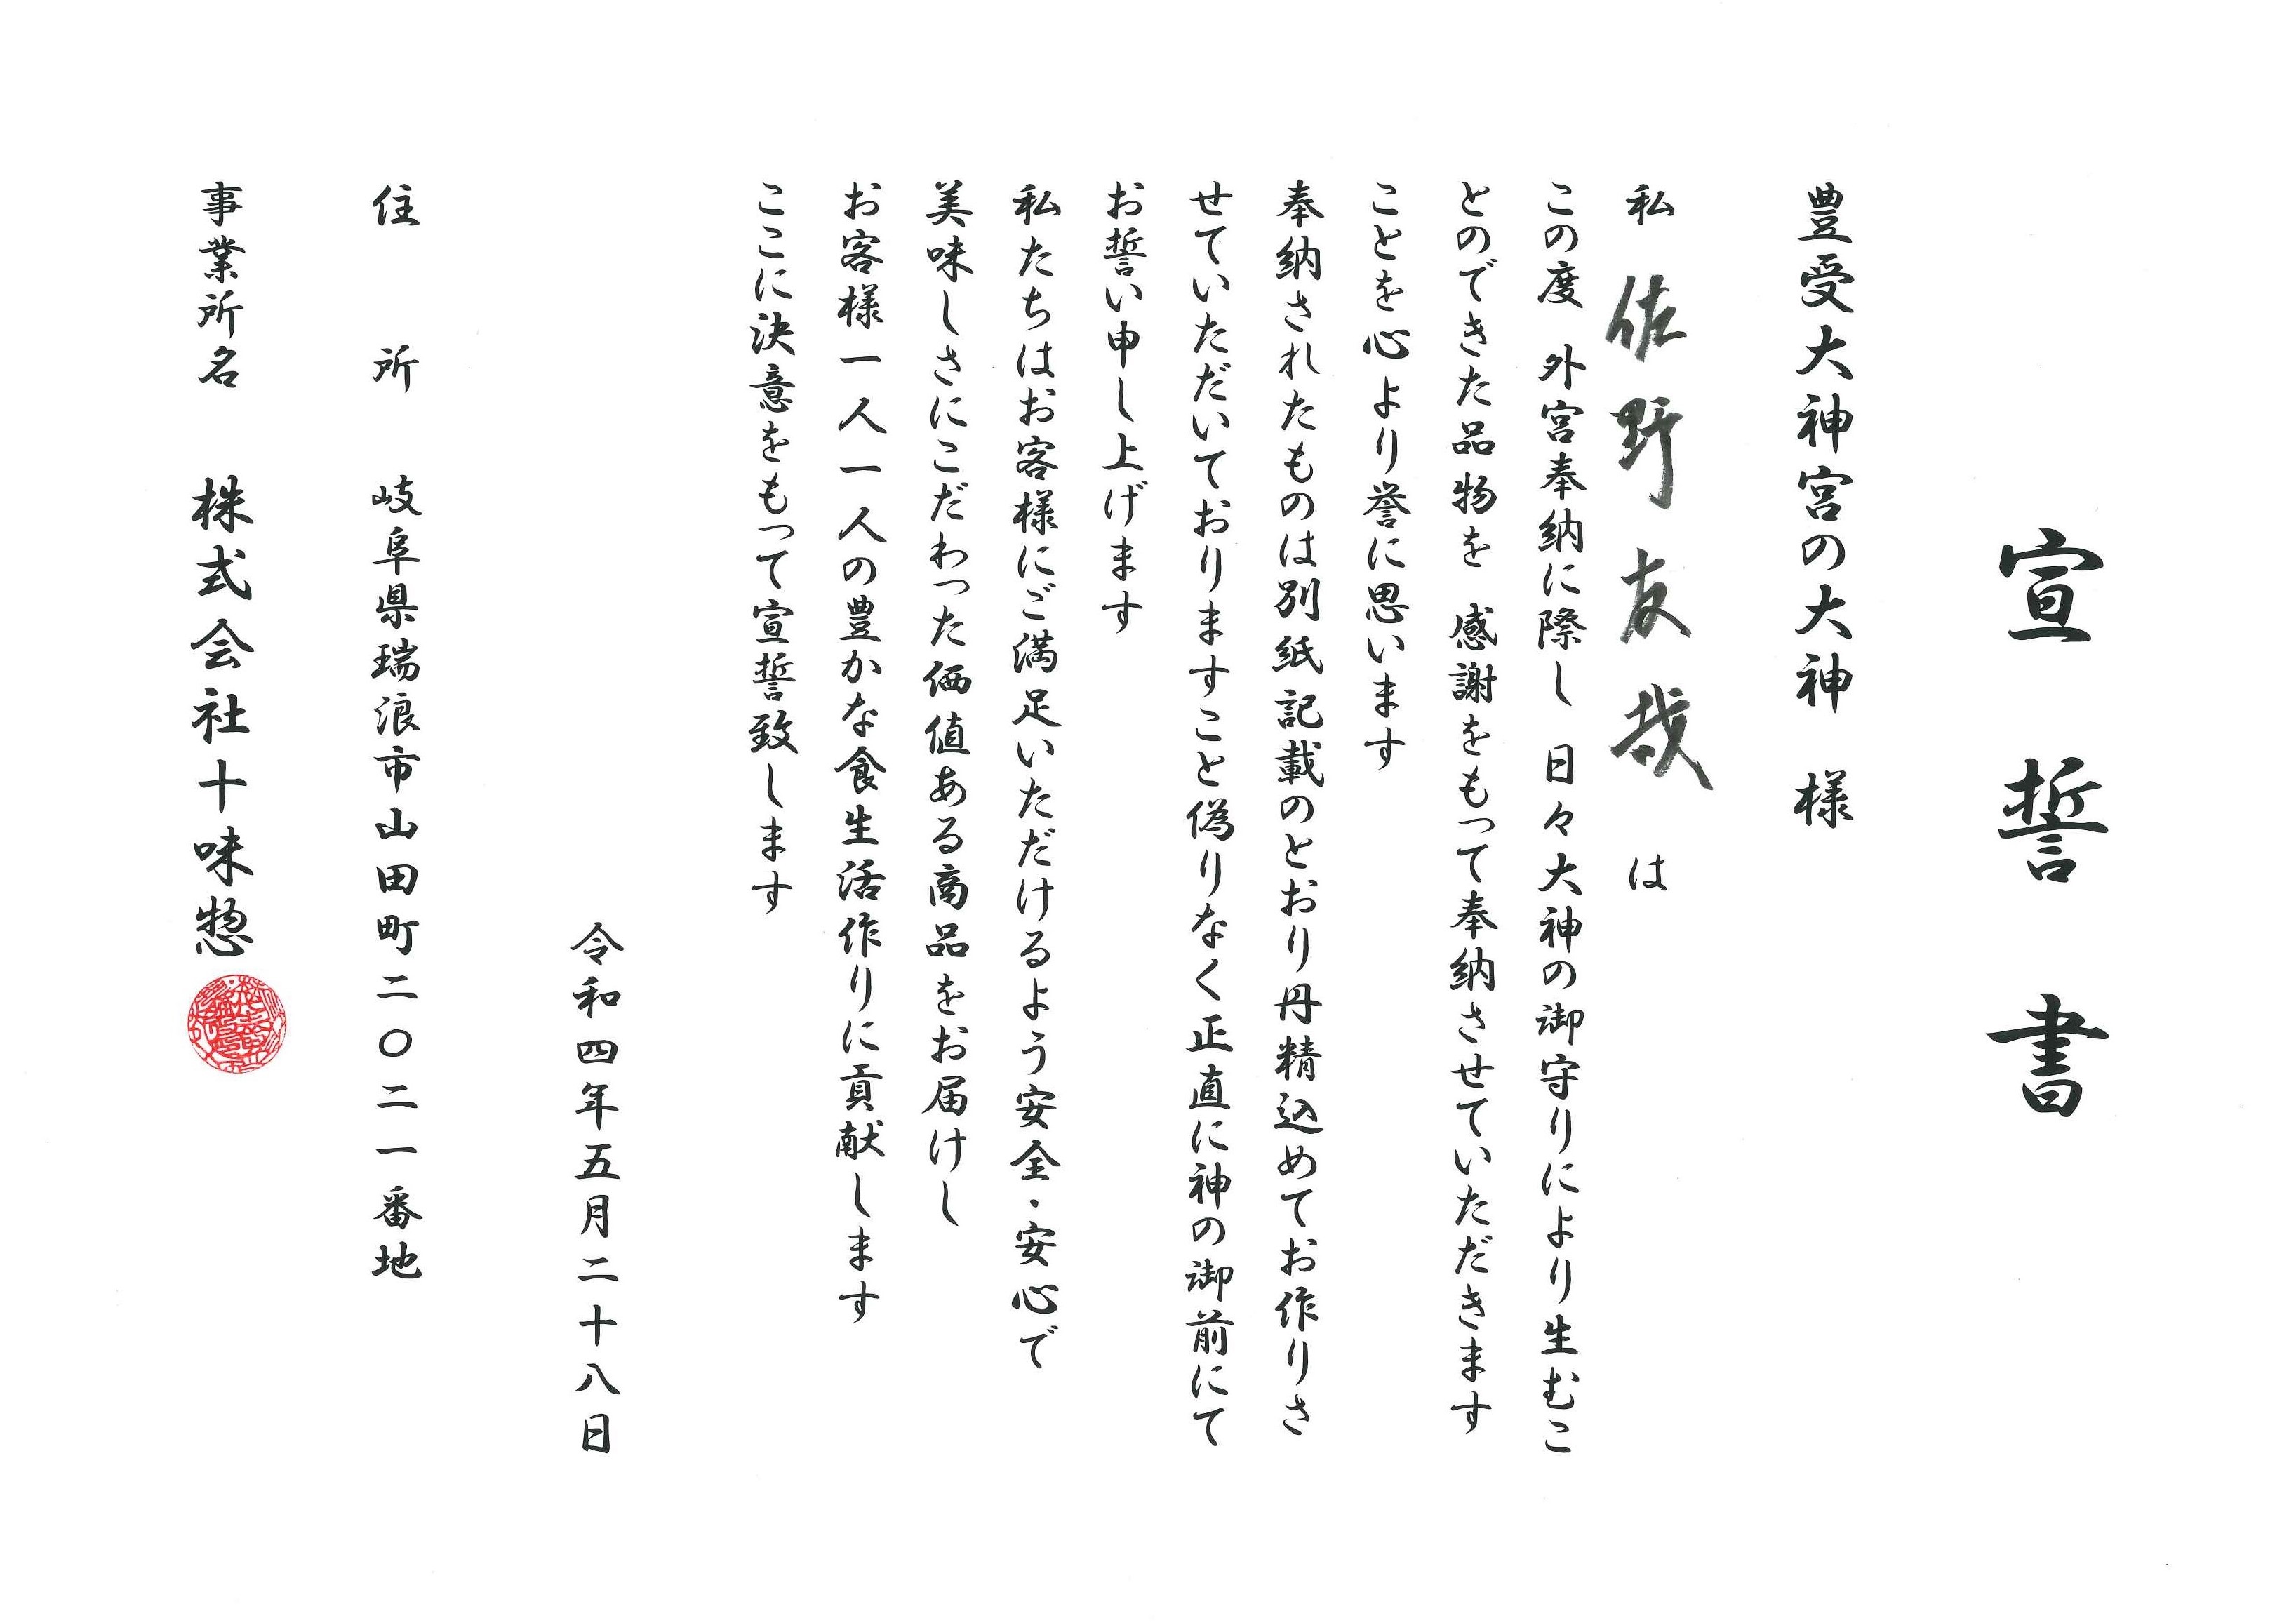 宣誓書
豊受大神宮の大神 様
私 佐野友哉 は
この度 外宮奉納に際し 日々大神の御守りにより生むこ
とのできた品物を 感謝をもって奉納させていただきます
ことを心より誉に思います
奉納されたものは別紙記載のとおり丹精込めてお作りさ
せていただいておりますこと偽りなく正直に神の御前にて
お誓い申し上げます
私たちはお客様にご満足いただけるよう安全・安心で
美味しさにこだわった価値ある商品をお届けし
お客様一人一人の豊かな食生活作りに貢献します
ここに決意をもって宣誓致します
令和四年五月二十八日
住所 岐阜県瑞浪市山田町二〇二一番地
事業所名 株式会社十味惣